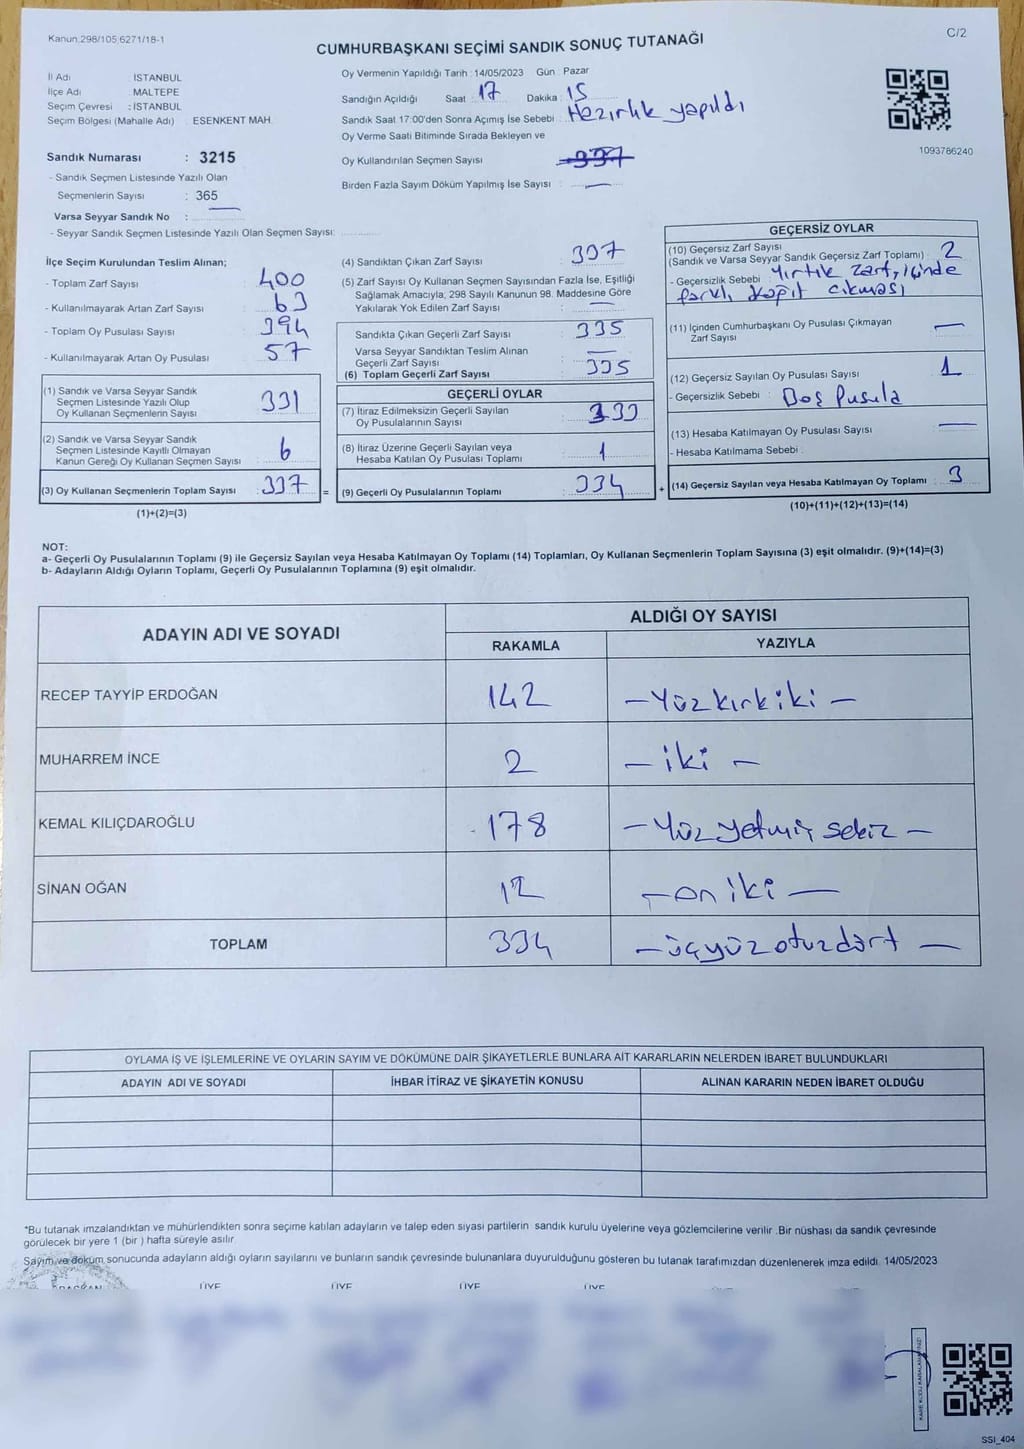 Kanun.298/105;6271/18-1
C/2
CUMHURBAŞKANI SEÇİMİ SANDIK SONUÇ TUTANAĞI
İl Adı : İSTANBUL
İlçe Adı : MALTEPE
Seçim Çevresi : İSTANBUL
Seçim Bölgesi (Mahalle Adı) : ESENKENT MAH.
Sandık Numarası : 3215
- Sandık Seçmen Listesinde Yazılı Olan
Seçmenlerin Sayısı : 365
Varsa Seyyar Sandık No :
- Seyyar Sandık Seçmen Listesinde Yazılı Olan Seçmen Sayısı:
Oy Vermenin Yapıldığı Tarih :14/05/2023 Gün : Pazar
Sandığın Açıldığı Saat : 17 Dakika : 15
Sandık Saat 17:00'den Sonra Açımış İse Sebebi : Hazırlık yapıldı
Oy Verme Saati Bitiminde Sırada Bekleyen ve
Oy Kullandırılan Seçmen Sayısı : 337
Birden Fazla Sayım Döküm Yapılmış İse Sayısı : —
1093786240
İlçe Seçim Kurulundan Teslim Alınan;
- Toplam Zarf Sayısı : 400
- Kullanılmayarak Artan Zarf Sayısı : 63
- Toplam Oy Pusulası Sayısı : 394
- Kullanılmayarak Artan Oy Pusulası : 57
(1) Sandık ve Varsa Seyyar Sandık
Seçmen Listesinde Yazılı Olup
Oy Kullanan Seçmenlerin Sayısı : 331
(2) Sandık ve Varsa Seyyar Sandık
Seçmen Listesinde Kayıtlı Olmayan
Kanun Gereği Oy Kullanan Seçmen Sayısı : 6
(3) Oy Kullanan Seçmenlerin Toplam Sayısı : 337 =
(1)+(2)=(3)
(4) Sandıktan Çıkan Zarf Sayısı : 337
(5) Zarf Sayısı Oy Kullanan Seçmen Sayısından Fazla İse, Eşitliği
Sağlamak Amacıyla; 298 Sayılı Kanunun 98. Maddesine Göre
Yakılarak Yok Edilen Zarf Sayısı : —
Sandıkta Çıkan Geçerli Zarf Sayısı : 335
Varsa Seyyar Sandıktan Teslim Alınan
Geçerli Zarf Sayısı : —
(6) Toplam Geçerli Zarf Sayısı : 335
GEÇERLİ OYLAR
(7) İtiraz Edilmeksizin Geçerli Sayılan
Oy Pusulalarının Sayısı : 333
(8) İtiraz Üzerine Geçerli Sayılan veya
Hesaba Katılan Oy Pusulası Toplamı : 1
(9) Geçerli Oy Pusulalarının Toplamı : 334 +
GEÇERSİZ OYLAR
(10) Geçersiz Zarf Sayısı
(Sandık ve Varsa Seyyar Sandık Geçersiz Zarf Toplamı) : 2
- Geçersizlik Sebebi : Yırtık Zarf, içinde
farklı kağıt çıkması
(11) İçinden Cumhurbaşkanı Oy Pusulası Çıkmayan
Zarf Sayısı : —
(12) Geçersiz Sayılan Oy Pusulası Sayısı : 1
- Geçersizlik Sebebi : Boş Pusula
(13) Hesaba Katılmayan Oy Pusulası Sayısı : —
- Hesaba Katılmama Sebebi :
(14) Geçersiz Sayılan veya Hesaba Katılmayan Oy Toplamı : 3
(10)+(11)+(12)+(13)=(14)
NOT:
a- Geçerli Oy Pusulalarının Toplamı (9) ile Geçersiz Sayılan veya Hesaba Katılmayan Oy Toplamı (14) Toplamları, Oy Kullanan Seçmenlerin Toplam Sayısına (3) eşit olmalıdır. (9)+(14)=(3)
b- Adayların Aldığı Oyların Toplamı, Geçerli Oy Pusulalarının Toplamına (9) eşit olmalıdır.
ADAYIN ADI VE SOYADI
ALDIĞI OY SAYISI
RAKAMLA YAZIYLA
RECEP TAYYİP ERDOĞAN 142 — Yüzkırkiki —
MUHARREM İNCE 2 — iki —
KEMAL KILIÇDAROĞLU 178 — Yüzyetmiş sekiz —
SİNAN OĞAN 12 — on iki —
TOPLAM 334 — üçyüzotuzdört —
OYLAMA İŞ VE İŞLEMLERİNE VE OYLARIN SAYIM VE DÖKÜMÜNE DAİR ŞİKAYETLERLE BUNLARA AİT KARARLARIN NELERDEN İBARET BULUNDUKLARI
ADAYIN ADI VE SOYADI İHBAR İTİRAZ VE ŞİKAYETİN KONUSU ALINAN KARARIN NEDEN İBARET OLDUĞU
*Bu tutanak imzalandıktan ve mühürlendikten sonra seçime katılan adayların ve talep eden siyasi partilerin sandık kurulu üyelerine veya gözlemcilerine verilir. Bir nüshası da sandık çevresinde
görülecek bir yere 1 (bir ) hafta süreyle asılır.
Sayım ve döküm sonucunda adayların aldığı oyların sayılarını ve bunların sandık çevresinde bulunanlara duyurulduğunu gösteren bu tutanak tarafımızdan düzenlenerek imza edildi. 14/05/2023
BAŞKAN ÜYE ÜYE ÜYE ÜYE
SSI_404